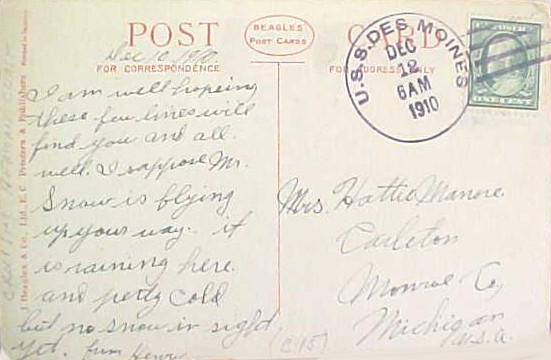 POST CARD
BEAGLES'
POST CARDS
FOR CORRESPONDENCE
FOR ADDRESS ONLY
Dec 10 1910
I am well hopeing
these few lines will
find you and all.
well. I suppose Mr.
Snow is flying
up your way. it
is raining here.
and petty cold
but no snow in sight.
yet. from Henry
U.S.S. DES MOINES
DEC
12
6AM
1910
ONE CENT
Mrs. Hattie Manore.
Carleton
Monroe Co,
Michigan
U.S.A.
(C-15)
J. Beagles & Co., Ltd., E.C. Printers & Publishers